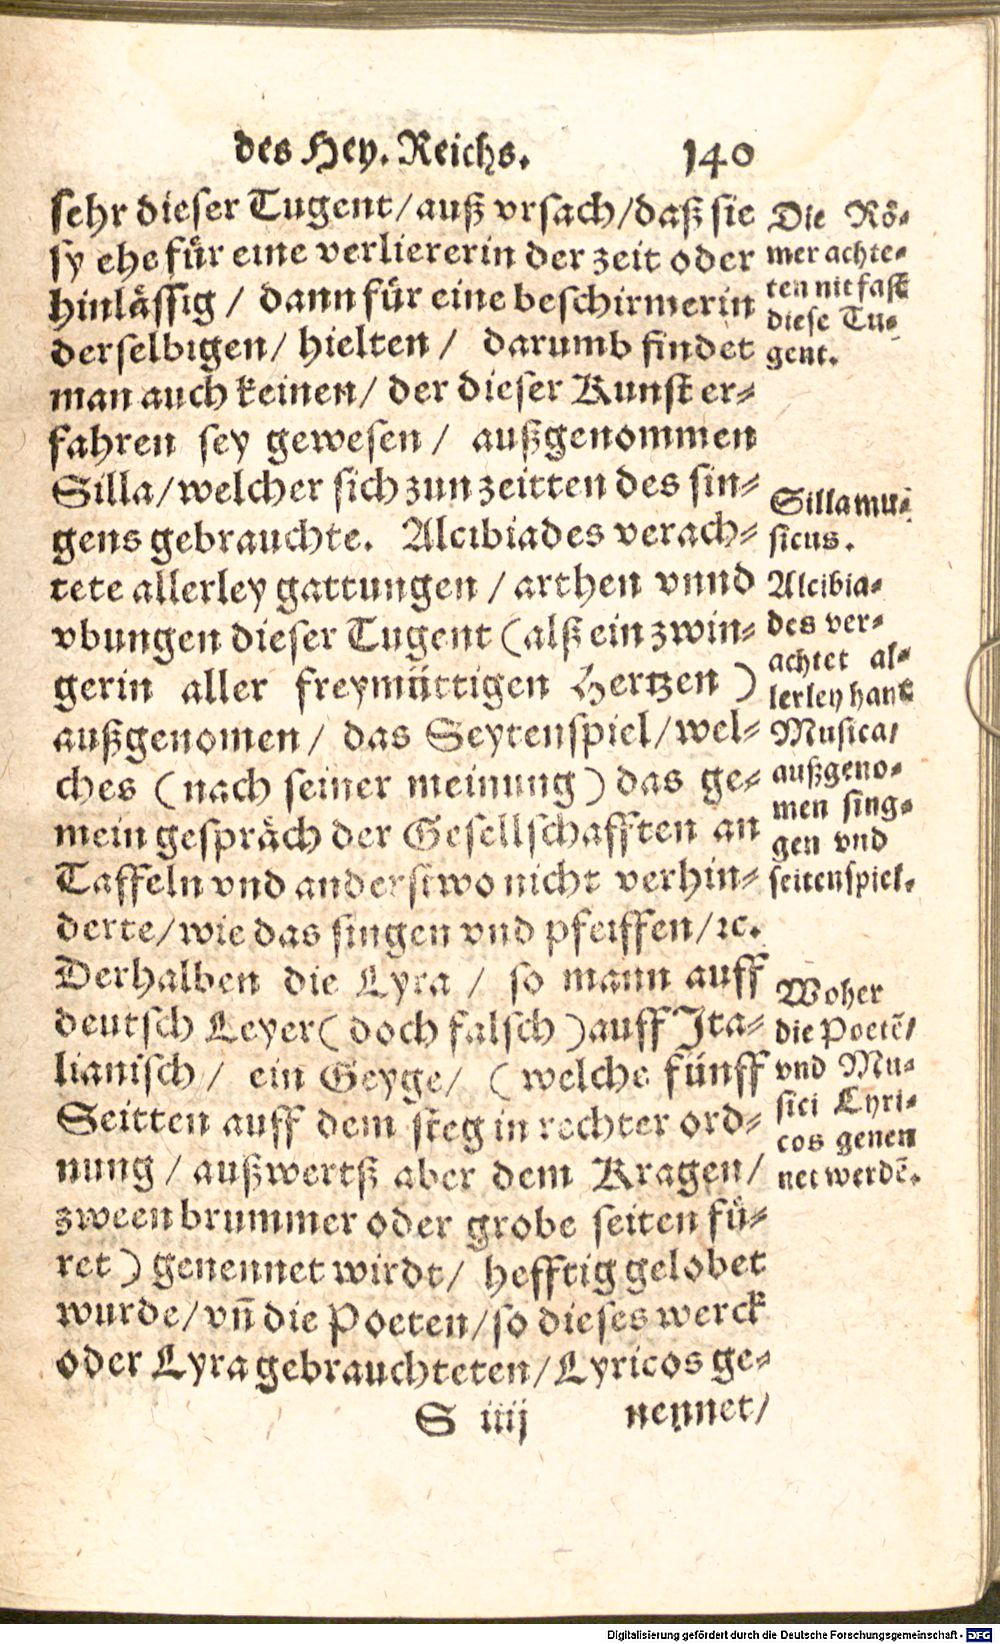 des Hey. Reichs. 140
sehr dieser Tugent/auß vrsach/daß sie
sy ehe für eine verliererin der zeit oder
hinlässig / dann für eine beschirmerin
derselbigen/ hielten / darumb findet
man auch keinen/ der dieser Kunst er-
fahren sey gewesen / außgenommen
Silla/welcher sich zun zeitten des sin-
gens gebrauchte. Alcibiades verach-
tete allerley gattungen / arthen vnnd
vbungen dieser Tugent (alß ein zwin-
gerin aller freymüttigen Hertzen )
außgenomen/ das Seytenspiel/wel-
ches (nach seiner meinung) das ge-
mein gespräch der Gesellschafften an
Taffeln vnd anderstwo nicht verhin-
derte/wie das singen vnd pfeiffen/ꝛc.
Derhalben die Lyra / so mann auff
deutsch Leyer( doch falsch )auff Jta-
lianisch/ ein Geyge/ ( welche fünff
Seitten auff dem steg in rechter ord-
nung / außwertß aber dem Kragen/
zween brummer oder grobe seiten fü-
ret ) genennet wirdt/ hefftig gelobet
wurde/vn̄ die Poeten/so dieses werck
oder Lyra gebrauchteten/Lyricos ge-
S iiij nennet/
Die Rö-
mer achte-
ten nit fast
diese Tu-
gent.
Silla mu-
sicus.
Alcibia-
des ver-
achtet al-
lerley hant
Musica/
außgeno-
men sing-
gen vnd
seitenspiel.
Woher
die Poetẽ/
vnd Mu-
sici Lyri-
cos genen
net werdẽ.
Digitalisierung gefördert durch die Deutsche Forschungsgemeinschaft - DFG